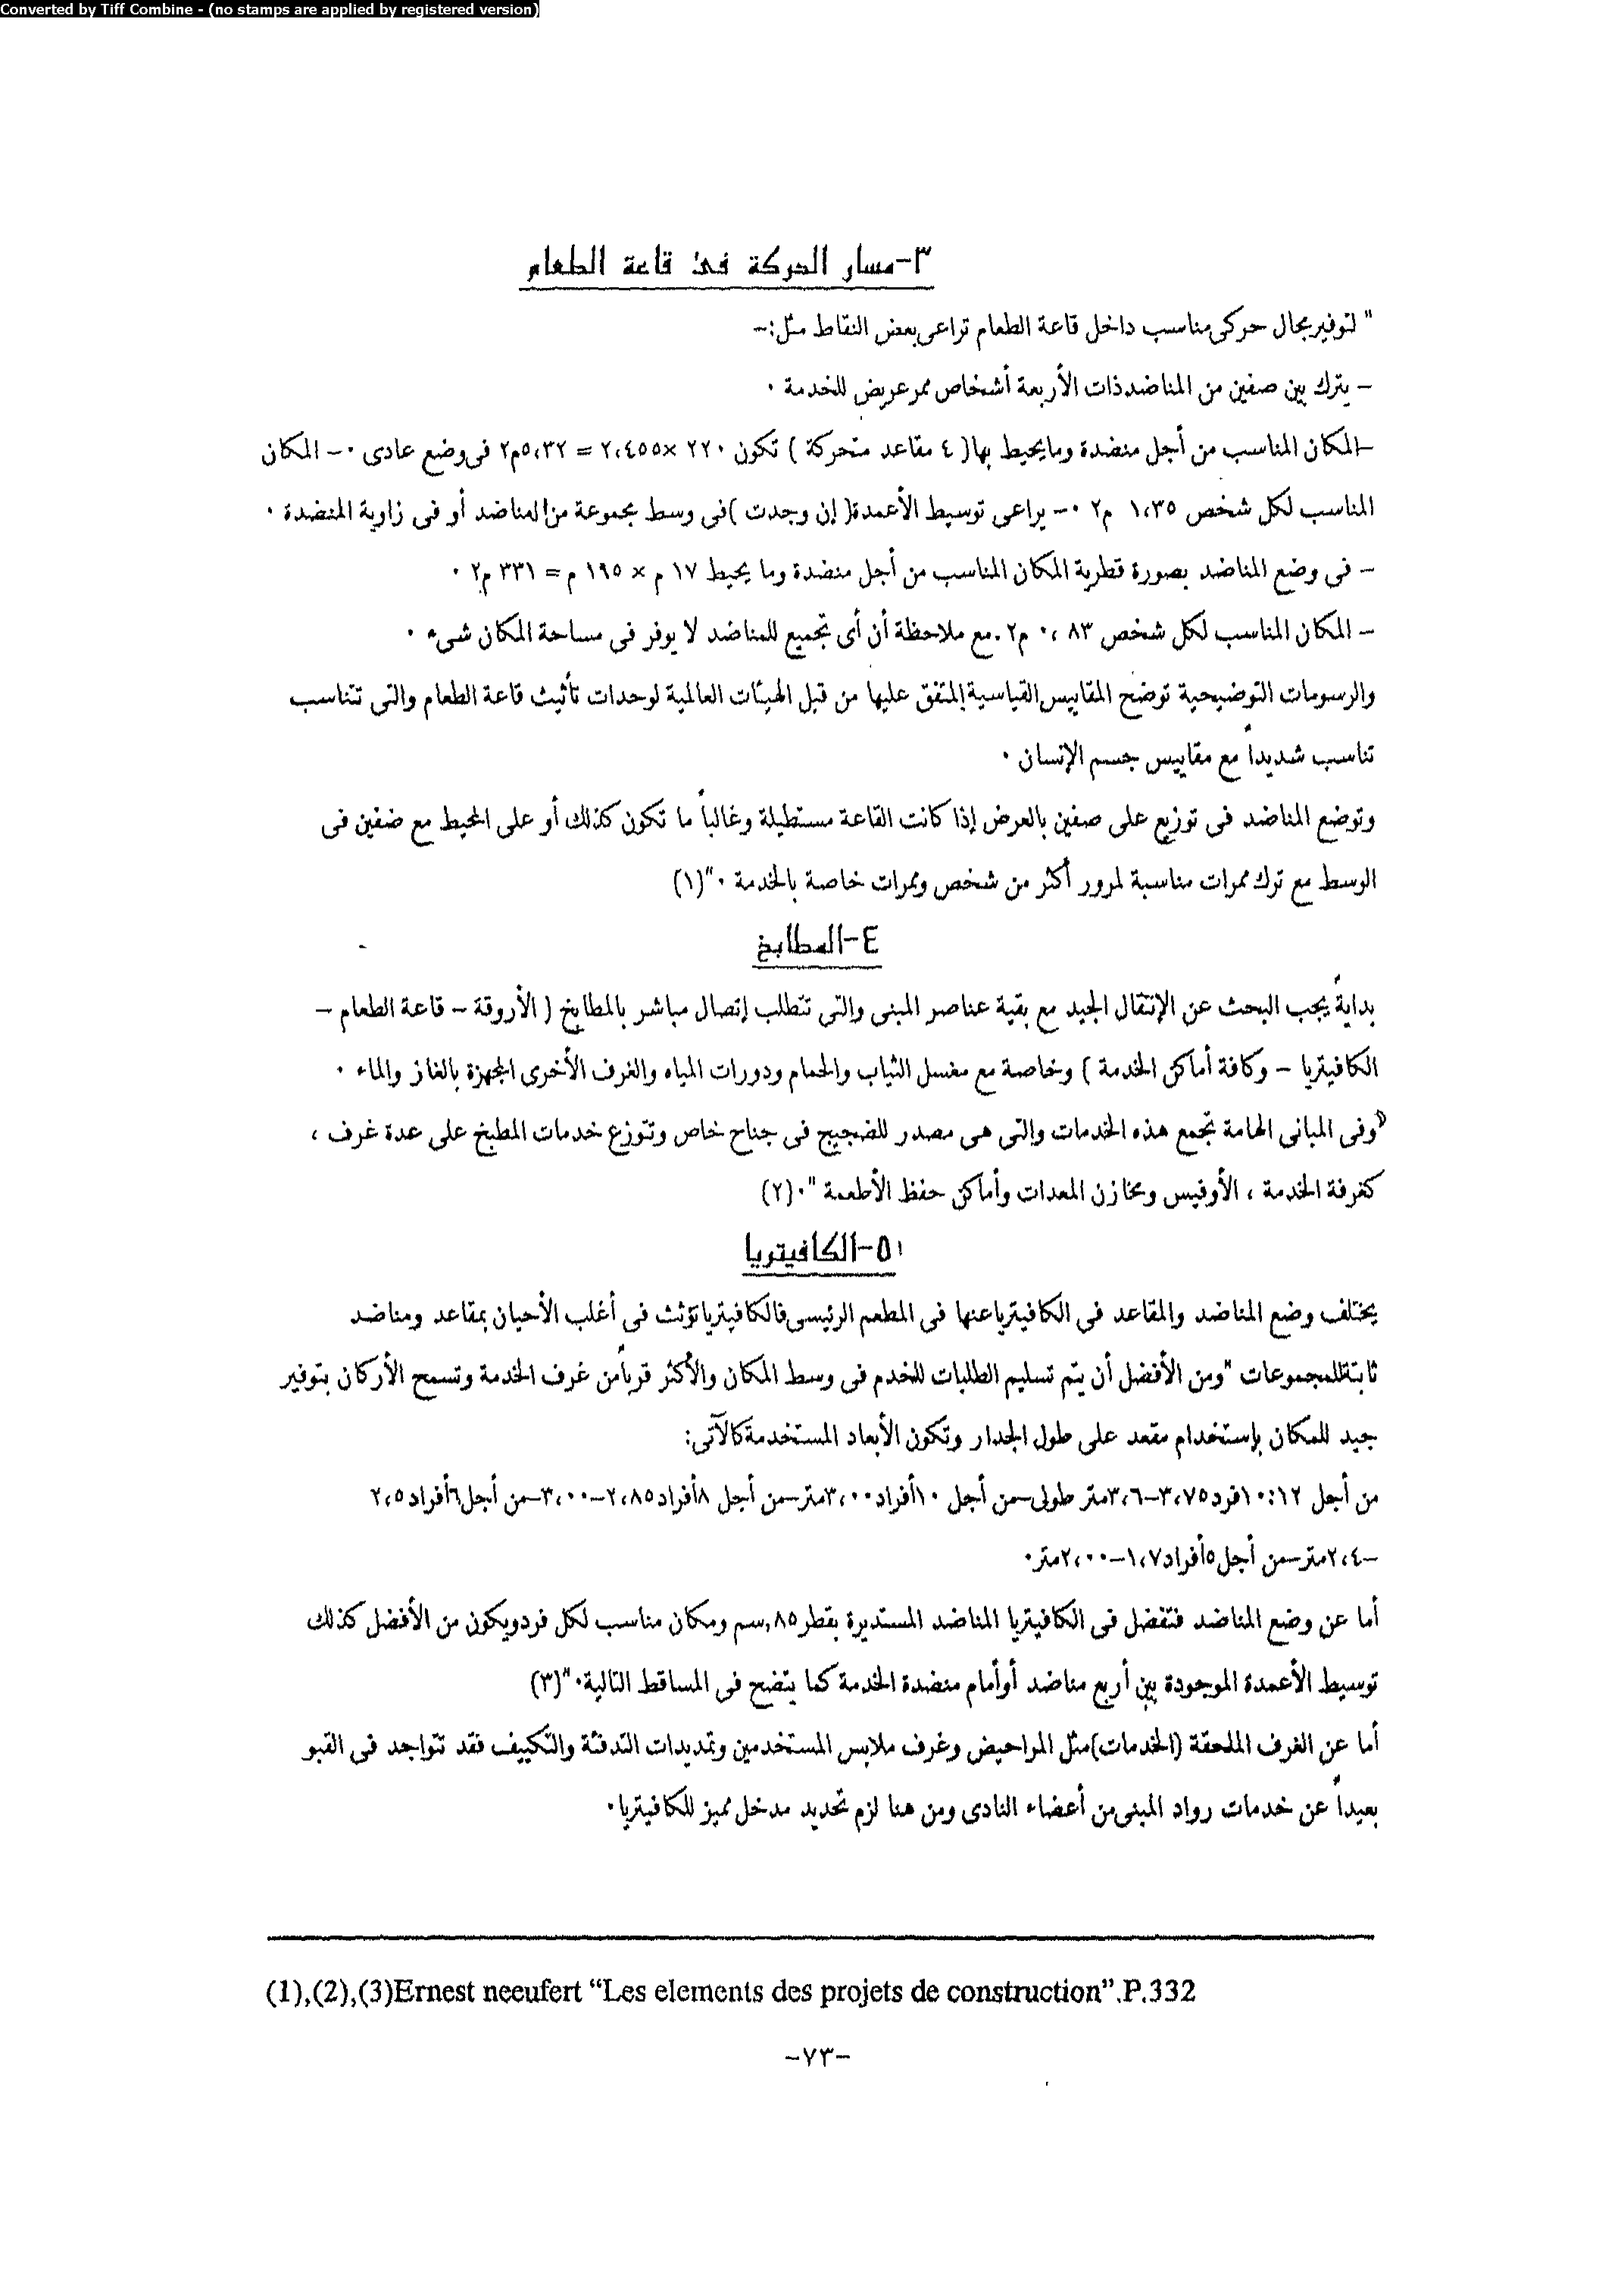 Converted by Tiff Combine - (no stamps are applied by registered version)
٣-مسار الحركة فى قاعة الطعام
" لتوفير مجال حركى مناسب داخل قاعة الطعام تراعى بعض النقاط مثل:-
- يترك بين صفين من المناضد ذات الأربعة أشخاص ممر عريض للخدمة ٠
-المكان المناسب من أجل منضدة ومايحيط بها( ٤ مقاعد متحركة ) تكون ٢٢٠ ×٢،٤٥٥ = ٥،٣٢م٢ فى وضع عادى ٠- المكان
المناسب لكل شخص ١،٣٥ م٢ ٠- يراعى توسيط الأعمدة( إن وجدت )فى وسط مجموعة من المناضد أو فى زاوية المنضدة ٠
- فى وضع المناضد بصورة قطرية المكان المناسب من أجل منضدة وما يحيط ١٧ م × ١٩٥ م = ٣٣١ م٢ ٠
- المكان المناسب لكل شخص ٨٣ ،٠ م٢ .مع ملاحظة أن أى تجميع للمناضد لا يوفر فى مساحة المكان شىء ٠
والرسومات التوضيحية توضح المقاييس القياسية المتفق عليها من قبل الهيئات العالمية لوحدات تأثيث قاعة الطعام والتى تتناسب
تناسب شديداً مع مقاييس جسم الإنسان ٠
وتوضع المناضد فى توزيع على صفين بالعرض إذا كانت القاعة مستطيلة وغالباً ما تكون كذلك أو على المحيط مع ضفين فى
الوسط مع ترك ممرات مناسبة لمرور أكثر من شخص وممرات خاصة بالخدمة ٠"(١)
٤-المطابخ
بدايةً يجب البحث عن الإنتقال الجيد مع بقية عناصر المبنى والتى تتطلب إتصال مباشر بالمطابخ ( الأروقة - قاعة الطعام -
الكافيتريا - وكافة أماكن الخدمة ) وخاصة مع مغسل الثياب والحمام ودورات المياه والغرف الأخرى المجهزة بالغاز والماء ٠
"وفى المبانى الهامة تجمع هذه الخدمات والتى هى مصدر للضجيج فى جناح خاص وتتوزع خدمات المطبخ على عدة غرف ،
كغرفة الخدمة ، الأوفيس ومخازن المعدات وأماكن حفظ الأطعمة "٠(٢)
٥-الكافيتريا
يختلف وضع المناضد والمقاعد فى الكافيتريا عنها فى المطعم الرئيسى فالكافيتريا تؤثث فى أغلب الأحيان بمقاعد ومناضد
ثابتة للمجموعات "ومن الأفضل أن يتم تسليم الطلبات للخدم فى وسط المكان والأكثر قرباً من غرف الخدمة وتسمح الأركان بتوفير
جيد للمكان بإستخدام مقعد على طول الجدار وتكون الأبعاد المستخدمة كالآتى:
من أجل ١٠:١٢فرد٣،٧٥-٣،٦متر طولى-من أجل ١٠أفراد٣،٠٠متر-من أجل ٨أفراد٢،٨٥-٣،٠٠-من أجل٦أفراد٢،٥
-٢،٤متر-من أجل٥أفراد١،٧-٢،٠٠متر٠
أما عن وضع المناضد فتفضل فى الكافيتريا المناضد المستديرة بقطر٨٥,سم ومكان مناسب لكل فردويكون من الأفضل كذلك
توسيط الأعمدة الموجودة بين أربع مناضد أوأمام منضدة الخدمة كما يتضح فى المساقط التالية٠"(٣)
أما عن الغرف الملحقة (الخدمات)مثل المراحيض وغرف ملابس المستخدمين وتمديدات التدفئة والتكييف فقد تتواجد فى القبو
بعيداً عن خدمات رواد المبنى من أعضاء النادى ومن هنا لزم تحديد مدخل مميز للكافيتريا٠
(1),(2),(3)Ernest neeufert "Les elements des projets de construction".P.332
-٧٣-